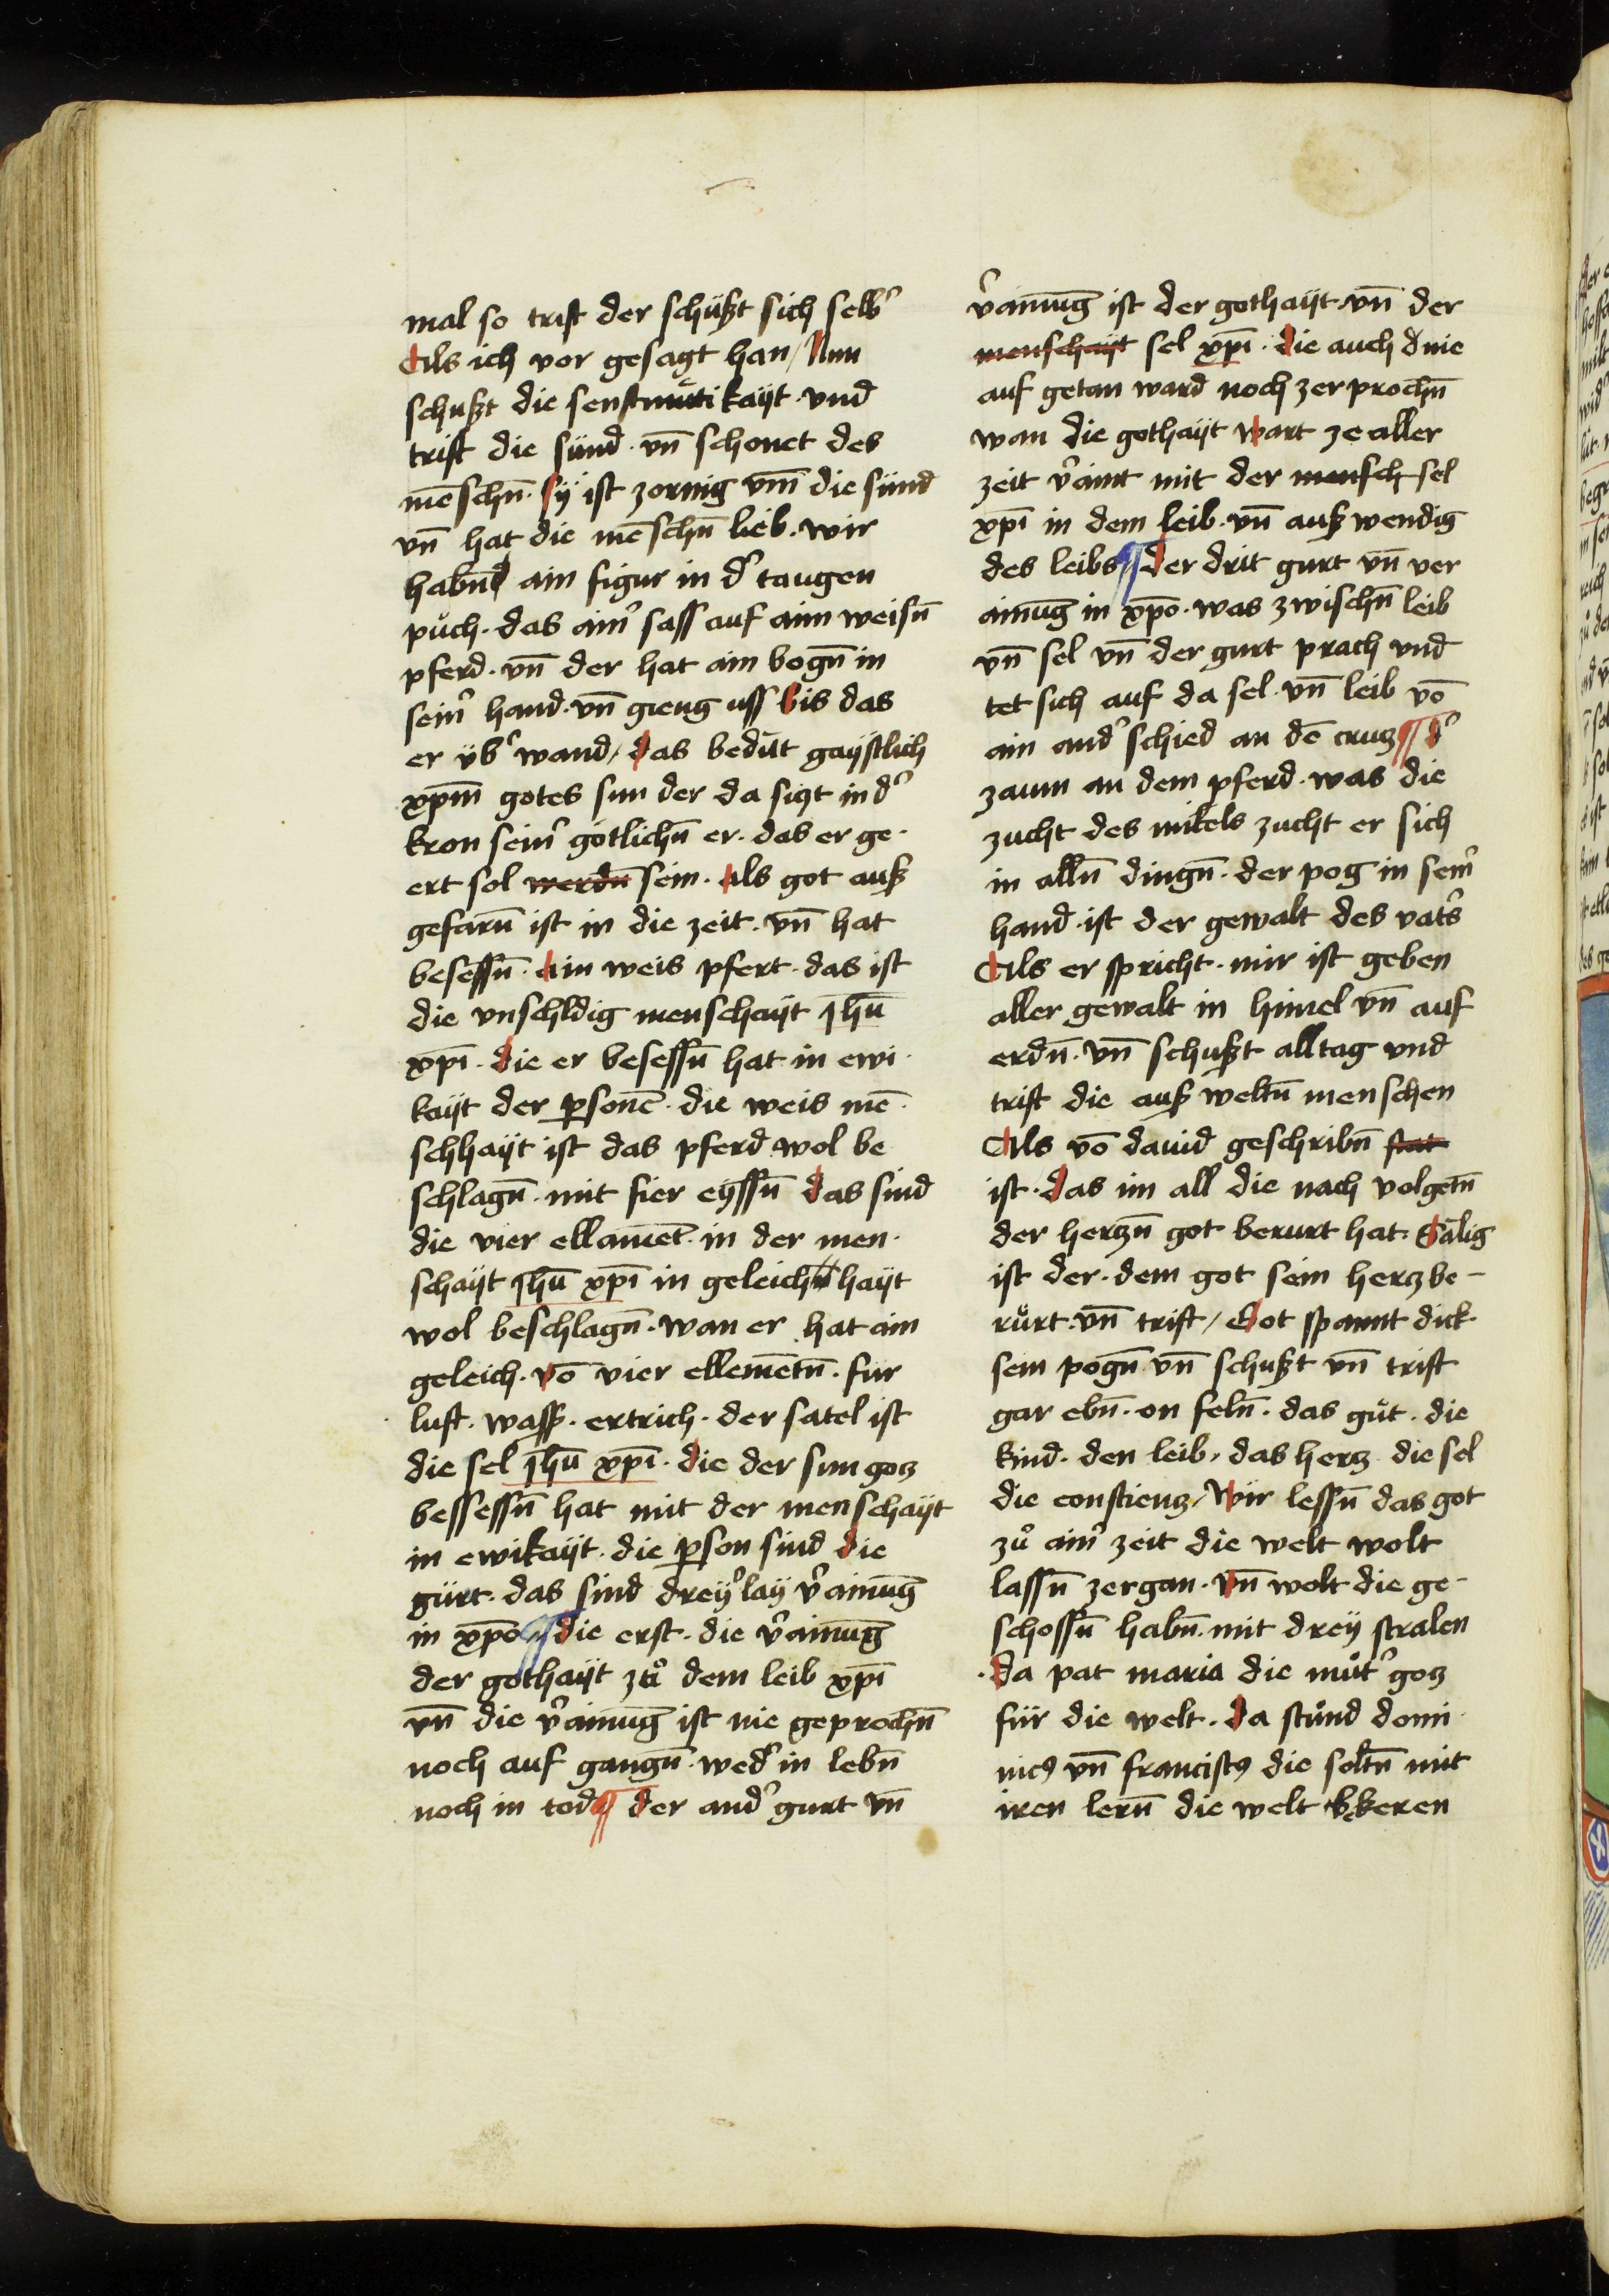 mal so trift der schüßt sich selb͛
Als ich vor gesagt han / Nun
schußt die senftmuͤtikayt · vnd
trift die sünd · vn̄ schonet des
mēschn̄ · sÿ ist zornig vm̄ die sünd
vn̄ hat die mēschn̄ lieb · wir
habn̄d ain figur in d͛ taugen
puͦch · das ain͛ sass auf aim weisn̄
pferd · vn̄ der hat ain bogn̄ in
sein͛ hand · vn̄ gieng uss bis das
er üb͛ wand / das bedüt gaÿstlich
xp̄m gotes sun der da siczt in d͛
kron sein͛ götlichn̄ er · das er ge
ert sol werdn̄ sein · Als got auß
gefarn̄ ist in die zeit · vn̄ hat
besessn̄ · Ain weis pfert · das ist
die vnschldig menschayt jhū
xp̄i · die er besessn̄ hat in ewi
kaÿt der p̱sonē · die weis mē
schhaÿt ist das pferd wol be
schlagn̄ · mit fier eÿssn̄ das sind
die vier ellamēt · in der men
schaÿt jhū xp̄i in geleichn̄ haÿt
wol beschlagn̄ · wan er hat ain
geleich · vō vier ellemētn̄ · für
luft · wass͛ · ertrich · der satel ist
die sel jhū xp̄i · die der sun gotz
bessessn̄ hat mit der menschaÿt
in ewikaÿt · die p̱son sind die
gürt · das sind dreÿ͛laÿ v͛ainūg
in xp̄o ¶ die erst · die v͛ainūg
der gothaÿt zuͦ dem leib xp̄i
vn̄ die v͛ainūg ist nie geprochn̄
noch auf gangn̄ · wed͛ in lebn̄
noch in tod ¶ der and͛ gurt vn̄
v͛ainūg ist der gothaÿt · vn̄ der
menschaÿt sel xp̄i · die auch d nie
auf getan ward noch zerprochn̄
wan die gothaÿt wart ze aller
zeit v͛aint mit der mensch sel
xp̄i in dem leib · vn̄ auß wendig
des leibs ¶ der drit gurt vn̄ ver
ainūg in xp̄o · was zwischn̄ leib
vn̄ sel vn̄ der gurt prach vnd
tet sich auf da sel · vn̄ leib vō
ain and͛ schied an dē crutz ¶ d͛
zaum an dem pferd · was die
zucht des mitels zucht er sich
in alln̄ dingn̄ · der pog in sein͛
hand · ist der gewalt des vat͛s
Als er spricht · mir ist geben
aller gewalt in himel vn̄ auf
erdn̄ · vn̄ schußt alltag vnd
trift die auß weltn̄ menschen
Als vō dauid geschribn̄ stat
ist · das im all die nach volgetn̄
der hertzn̄ got berurt hat · Sälig
ist der · dem got sein hertz be-
ruͤrt · vn̄ trift / Got spannt dick
sein pogn̄ · vn̄ schußt vn̄ trift
gar ebn̄ · on feln̄ · das guͦt · die
kind · den leib · das hertz · die sel
die conscientz / Wir lessn̄ das got
zuͦ ain͛ zeit die welt wolt
lassn̄ zergan · vn̄ wolt die ge-
schossn̄ habn̄ · mit dreÿ stralen
· da pat maria die muͦt͛ gotz
für die welt · da stuͦnd domi
nicꝰ vn̄ franciscꝰ die soltn̄ mit
iren lern̄ die welt bekeren